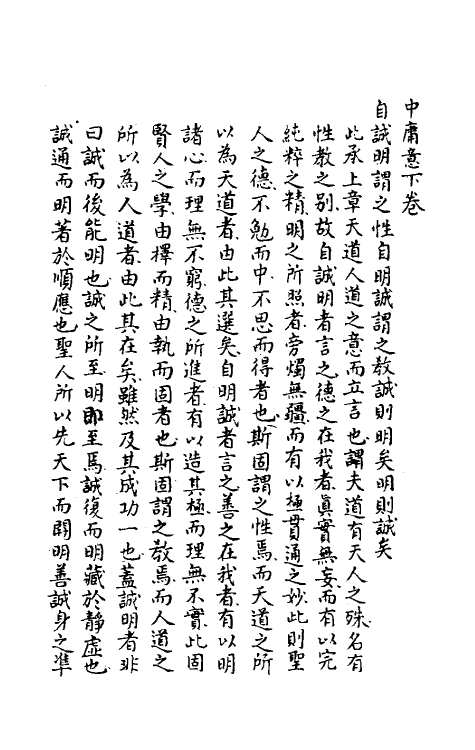 中庸意下卷
自誠明謂之性自明誠謂之教誠則明矣明則誠矣
此承上章天道人道之意而立言也謂夫道有天人之殊名有
性教之别故自誠明者言之德之在我者真實無妄而有以完
純粹之精明之所照者旁燭無疆而有以極貫通之妙此則聖
人之德不勉而中不思而得者也斯固謂之性焉而天道之所
以為天道者由此其選矣自明誠者言之善之在我者有以明
諸心而理無不窮德之所進者有以造其極而理無不實此固
賢人之學由擇而精由執而固者也斯固謂之教焉而人道之
所以為人道者由此其在矣雖然及其成功一也蓋誠明者非
曰誠而後能明也誠之所至明即至焉誠復而明藏於靜虛也
誠通而明著於順應也聖人所以先天下而開明善誠身之準